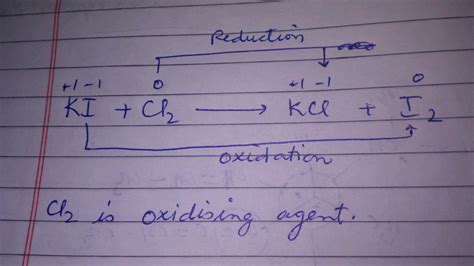 Reduction
+1 -1 0 +1 -1 0
KI + Cl₂ ⟶ KCl + I₂
oxidation
Cl₂ is oxidising agent.